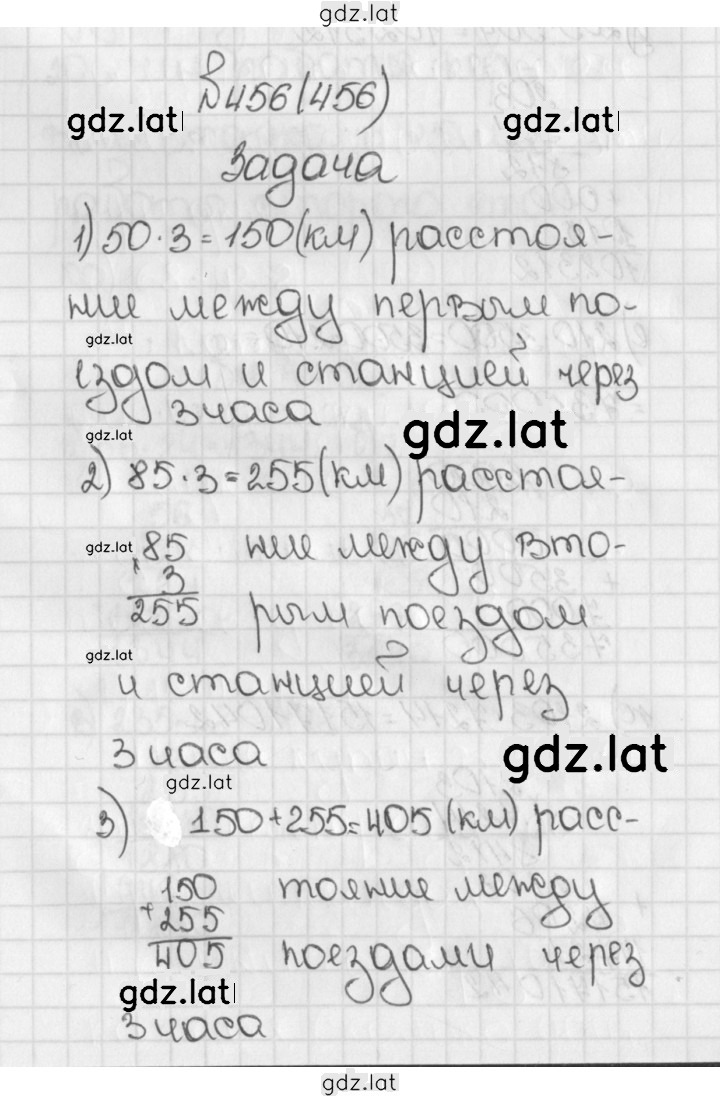 gdz.lat
№456(456)
gdz.lat gdz.lat
Задача
1) 50·3=150(км) расстоя-
ние между первым по-
gdz.lat
ездом и станцией через
3 часа
gdz.lat gdz.lat
2) 85·3=255(км) расстоя-
gdz.lat 85 ние между вто-
× 3
255 рым поездом
gdz.lat
и станцией через
3 часа
gdz.lat
gdz.lat
3) 150+255=405 (км) расс-
150 тояние между
+255
405 поездами через
gdz.lat
3 часа
gdz.lat